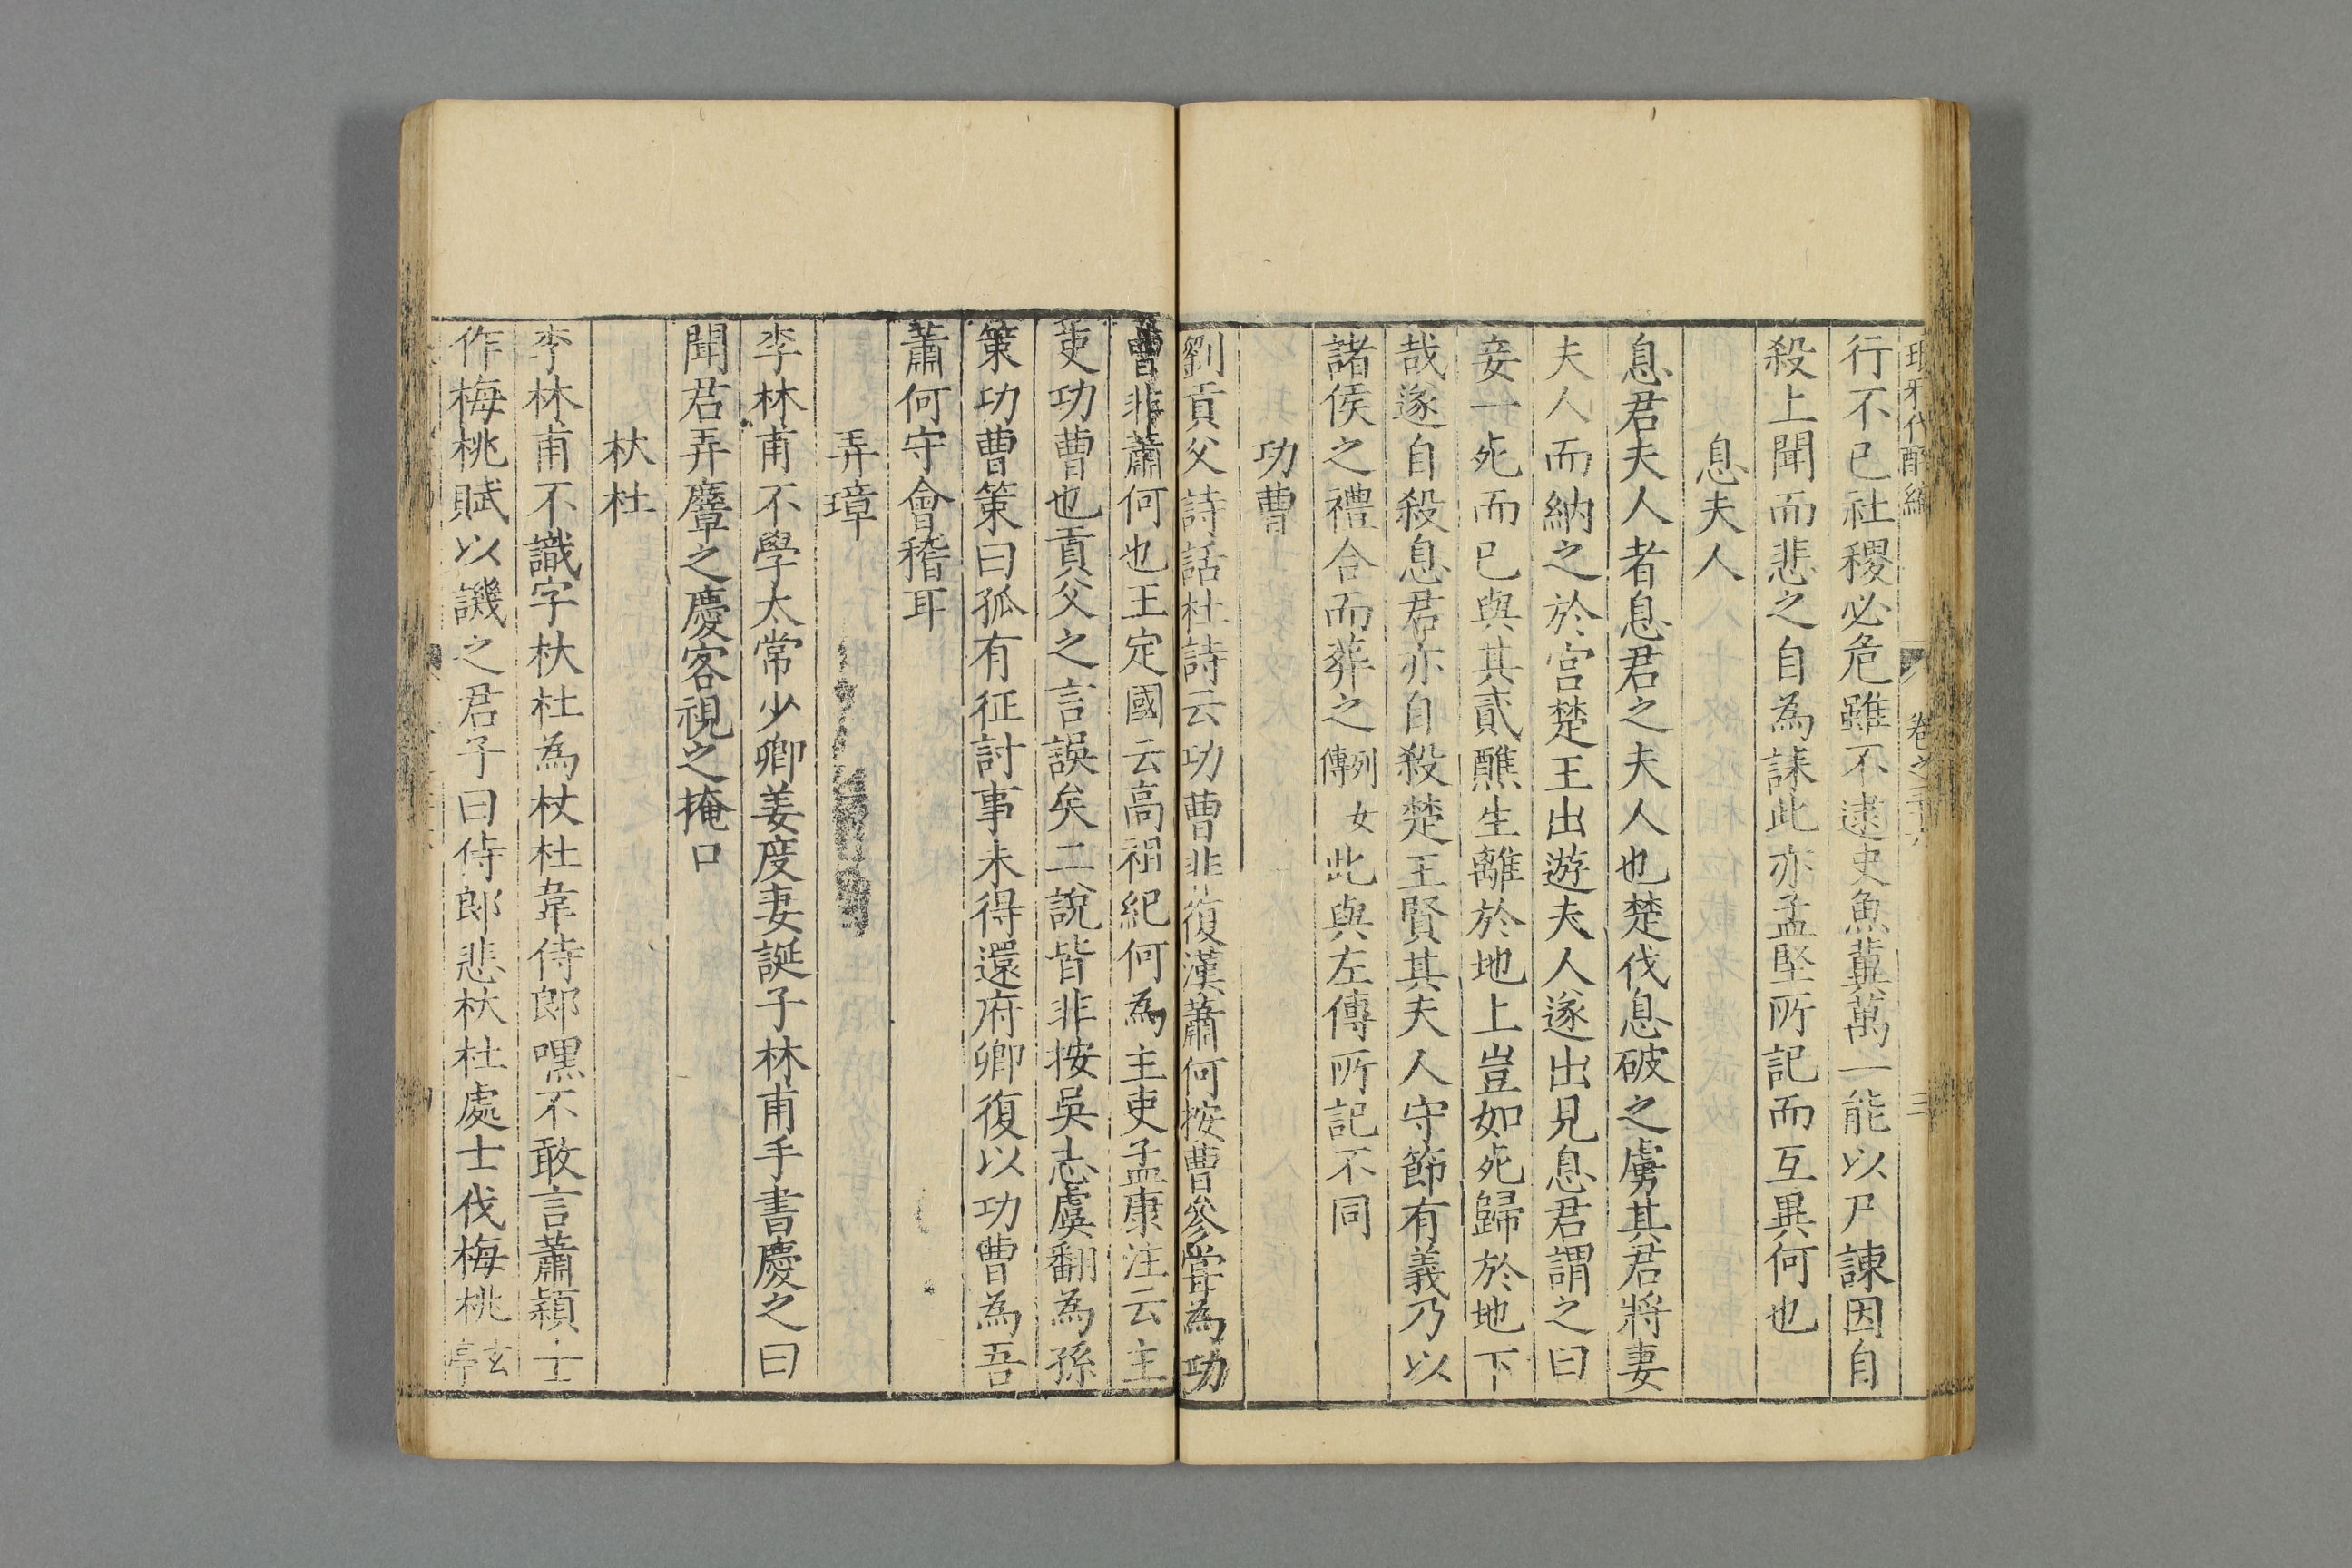 琅邪代醉編 卷之三十八 三
行不已社稷必危雖不逮史魚冀萬一能以尸諫因自
殺上聞而悲之自為誄此亦孟堅所記而互異何也
息夫人
息君夫人者息君之夫人也楚伐息破之虜其君將妻
夫人而納之於宮楚王出遊夫人遂出見息君謂之曰
妾一死而已與其貳醮生離於地上豈如死歸於地下
哉遂自殺息君亦自殺楚王賢其夫人守節有義乃以
諸侯之禮合而葬之列女傳此與左傳所記不同
功曹
劉貢父詩話杜詩云功曹非復漢蕭何按曹參嘗為功
曹非蕭何也王定國云高祖紀何為主吏孟康注云主
吏功曹也貢父之言誤矣二說皆非按吳志虞翻為孫
策功曹策曰孤有征討事未得還府卿復以功曹為吾
蕭何守會稽耳
弄璋
李林甫不學太常少卿姜度妻誕子林甫手書慶之曰
聞君弄麞之慶客視之掩口
杕杜
李林甫不識字杕杜為杖杜韋侍郎嘿不敢言蕭穎士
作梅桃賦以譏之君子曰侍郎悲杕杜處士伐梅桃玄亭